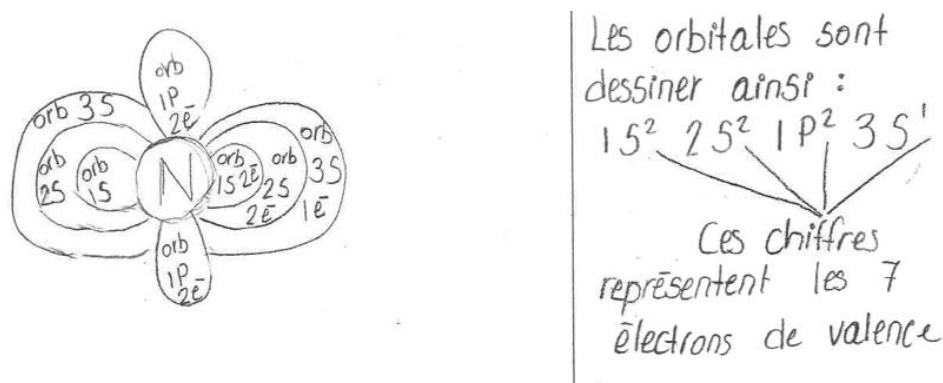 orb
1P
2ē
orb 3S
orb
2S
orb
1S
N
orb
1S 2ē
orb
2S
2ē
orb
3S
1ē
orb
1P
2ē
Les orbitales sont
dessiner ainsi :
1S² 2S² 1P² 3S¹
Ces chiffres
représentent les 7
électrons de valence